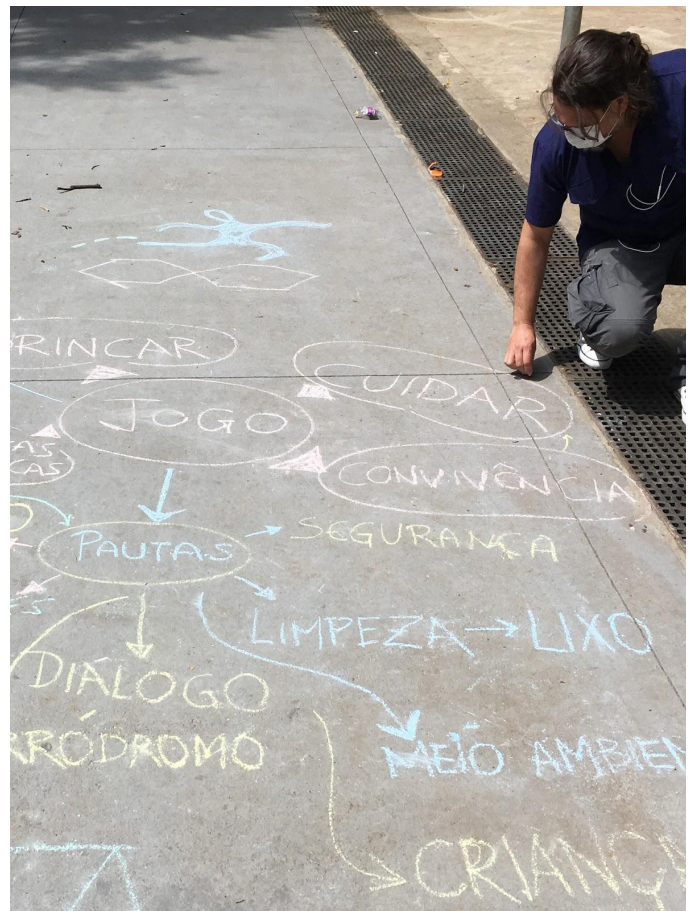 RINCAR
CUIDAR
JOGO
AS
CAS
CONVIVÊNCIA
O
PAUTAS
SEGURANÇA
ES
LIMPEZA → LIXO
DIÁLOGO
RRÓDROMO
MEIO AMBIEN
CRIANÇA